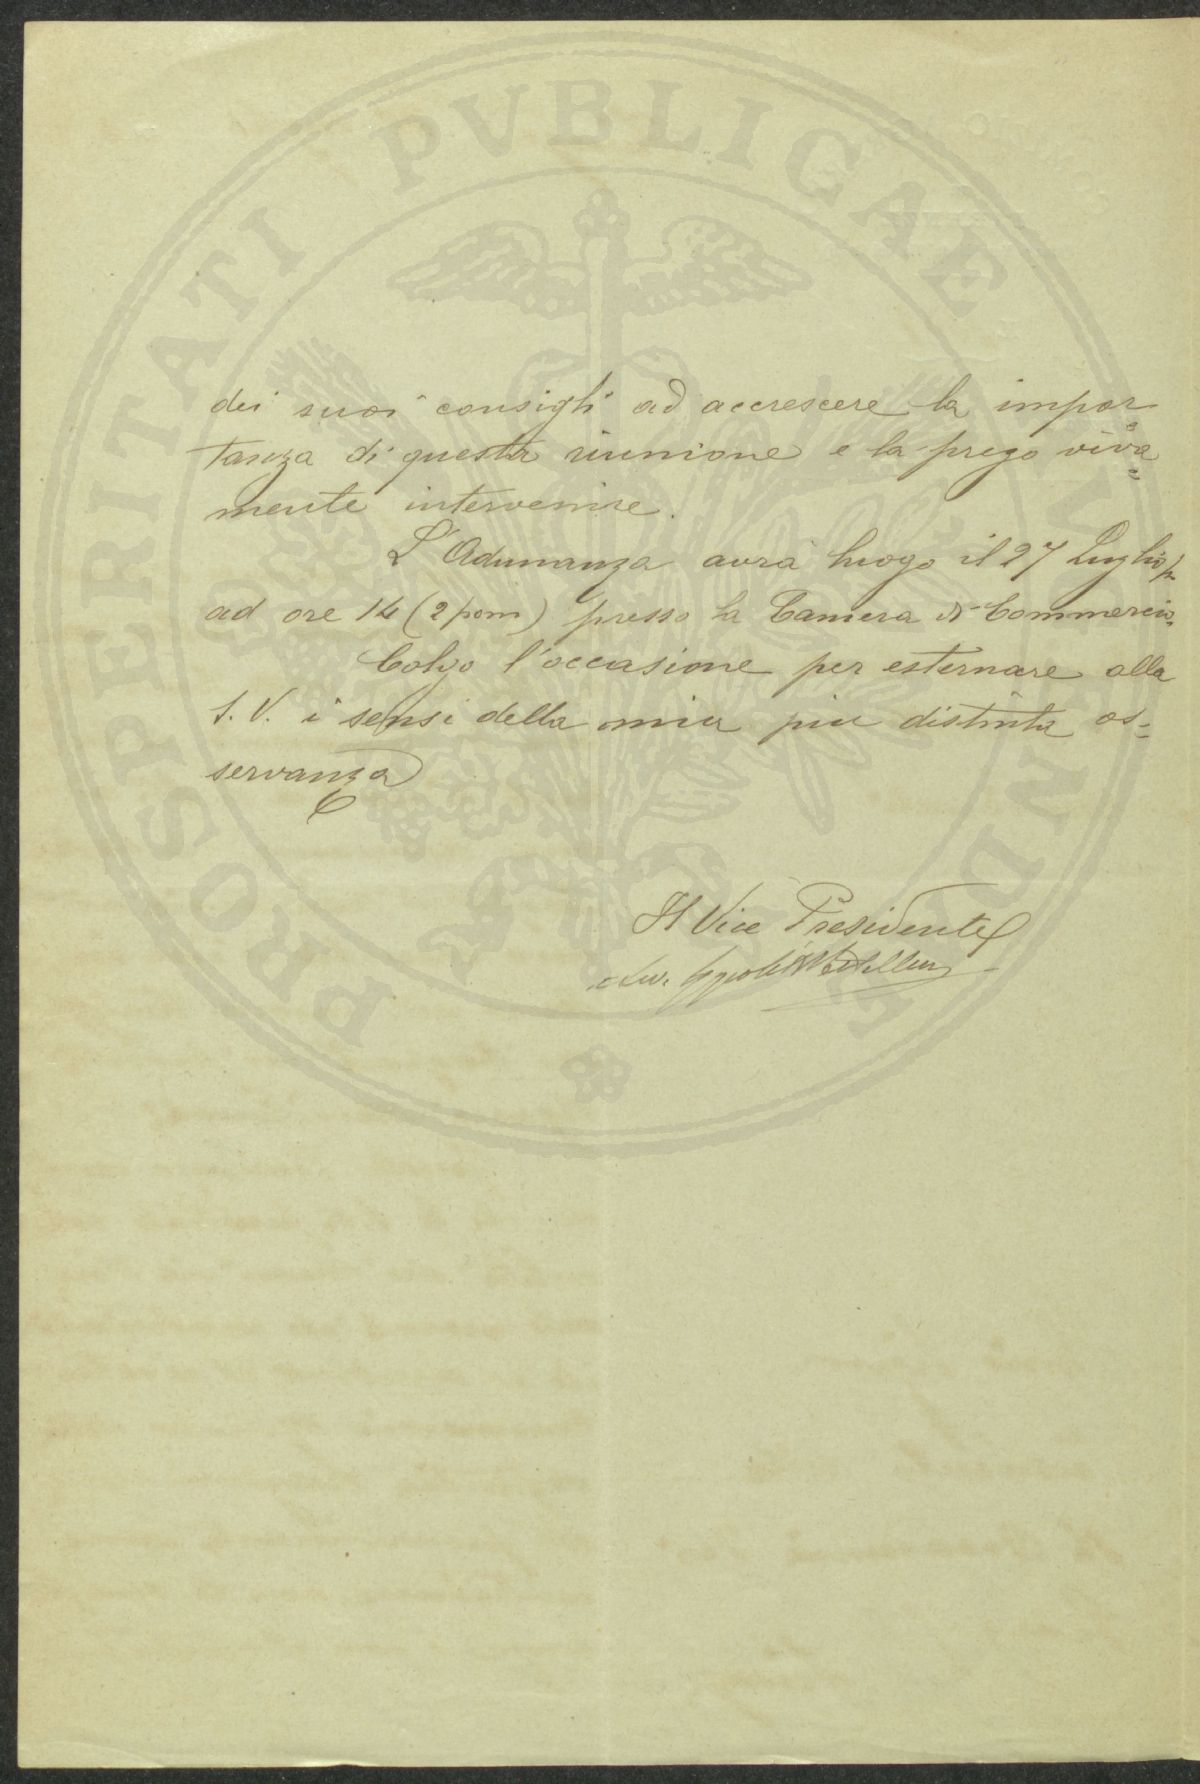 PROSPERITATI PVBLICAE
dei suoi consigli ad accrescere la impor
tanza di questa riunione e la prego viva=
mente intervenire.
L'Adunanza avrà luogo il 27 Luglio
ad ore 14 (2 pom) presso la Camera di Commercio.
Colgo l'occasione per esternare alla
S. V. i sensi della mia più distinta os=
servanza
Il Vice Presidente